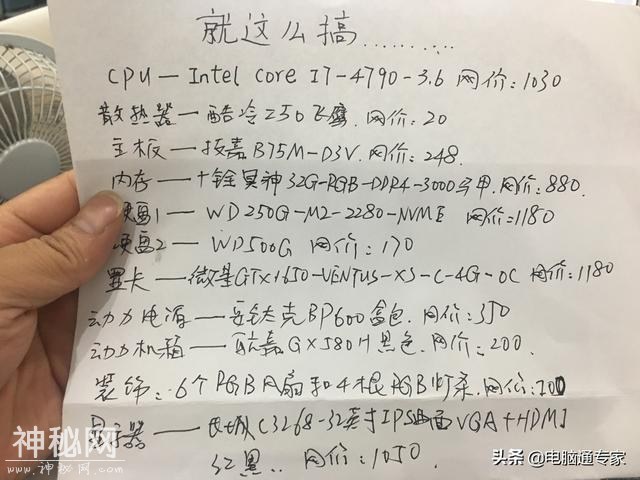 就这么搞.........
CPU—Intel Core I7-4790-3.6 网价:1030
散热器—酷冷Z50飞鹰.网价:20
主板—技嘉B75M-D3V.网价:248.
内存—十铨冥神32G-RGB-DDR4-3000马甲.网价:880.
硬盘1—WD250G-M2-2280-NVME 网价:1180
硬盘2—WD500G 网价:170
显卡—微星GTX1650-VENTUS-XS-C-4G-OC 网价:1180
动力电源—安钛克BP600盒包.网价:350
动力机箱—GX580H黑色.网价:200.
装饰:6个RGB风扇和4根RGB灯条.网价:
显示器—长城C3268-32英寸IPS曲面VGA+HDMI
红黑..网价:1050.
神秘网
www.shenmw.com
头条 @电脑通专家